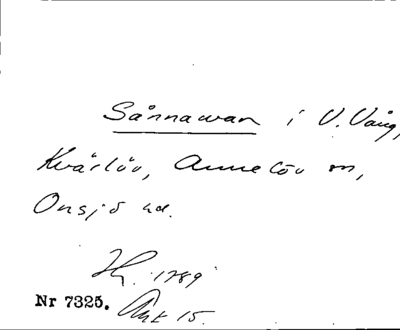 Sånnawan i V. Vång,
Kvärlöv, Annelöv sn,
Onsjö hd.
Hy. 1789
Nr 7325. Akt 15.